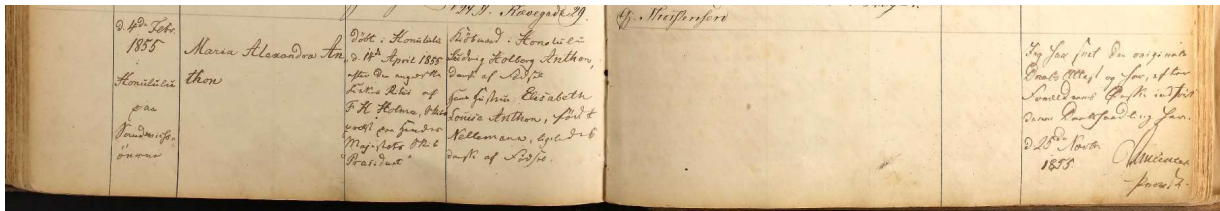 Kavegade 29.
d. 4de Febr.
1855
i
Honolulu
paa
Sandwichs-
öerne
Maria Alexandra An
thon
døbt i Honolulu
d. 18de April 1855
efter den
Kirkes Ritus af
F. H. Holme,
paa Hendes
Majestæts Skib
"President"
Kiöbmand i Honolulu
Ludvig Holberg Anthon,
dansk af Födsel
hans Hustru Elisabeth
Louise Anthon, född
Nellemann, ligeledes
dansk af Födsel.
Jeg har seet den originale
Daabs Attest og har, efter
Forældrenes Ønske indført
denne Daabhandling her.
d 25de Novbr.
1855.